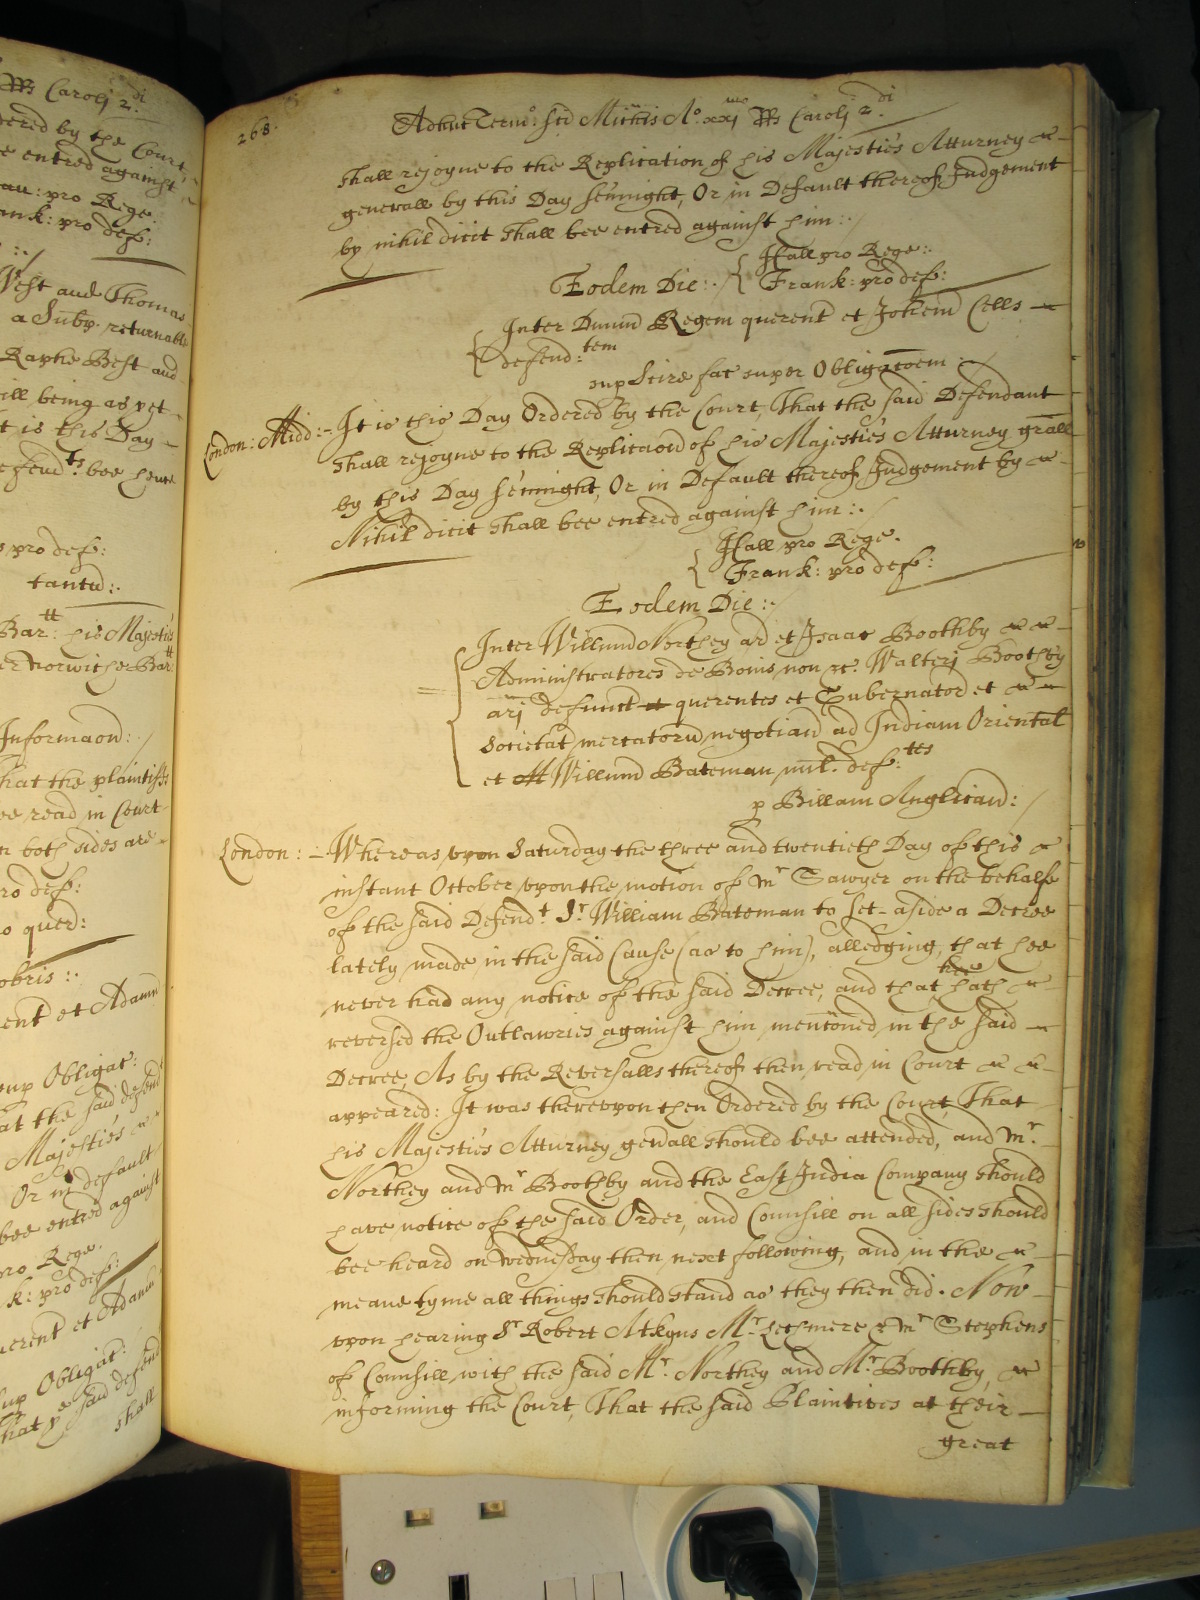 Rs Caroli 2.di
dered by the Court,
e entred against
pro Rege.
Frank: pro def:
West and Thomas
a Subp. returnable
Raphe Best and
ill being as yet
t is this Day
defend.ts bee
pro def:
tantu:
Bar.tt his Majesties
Informaon:
that the plaintiffs
ee read in Court
n both sides are
ro def:
o quer:
obris:
ent et Adamu
sup Obligat:
at the said defend
Majesties
Or in default
bee entred against
pro Rege.
k: pro def:
uerent et Adamu
sup Obligat:
that ye said defend
shall
268.
Adhuc Termo: Sci Michis Ao. xxjmo Rs Caroli 2.di
shall rejoyne to the Replication of his Majesties Atturney
generall by this Day sennight, Or in Default thereof Judgement
by nihil dicit shall bee entred against him:.
Hall pro Rege:.
Eodem Die:. Frank: pro def:
Inter Dnum Regem querent et Johem Cells
defend:tem
sup Scire fac super Obligacoem:
London: Midd:- It is this Day Ordered by the Court, That the said Defendant
shall rejoyne to the Replicaon of his Majesties Atturney grall
by this Day sennight, Or in Default thereof Judgement by
Nihil dicit shall bee entred against him:.
Hall pro Rege.
Frank: pro def:
Eodem Die:.
Inter Willmum Northey ar et Isaac Boothby
Administratores de Bonis non &c. Walteri Boothby
arj defunct querentes et Gubernator et
Societat mercatoru negotian ad Indiam Oriental
et Willmum Bateman mil. def:tes
p Billam Anglican:
London:- Whereas upon Saturday the three and twentieth Day of this
instant October, upon the motion of Mr Sawyer on the behalfe
of the said Defend.t Sr. William Bateman to set-aside a Decree
lately made in the said Cause (as to him), alledging, that hee
never had any notice of the said Decree, and that hee hath
reversed the Outlawries against him mentoned in the said
Decree, As by the Reversalls thereof then read in Court
appeared: It was thereupon then Ordered by the Court, That
his Majesties Atturney genall should bee attended, and Mr.
Northey and Mr Boothby and the East India Company should
have notice of the said Order, and Counsill on all sides should
bee heard on Wednesday then next following, and in the
meane tyme all things should stand as they then did. Now
upon hearing Sr Robert Atkyns Mr. Lechmere & Mr Stephens
of Counsill with the said Mr. Northey and Mr. Boothby,
informing the Court, That the said Plaintives at their
great